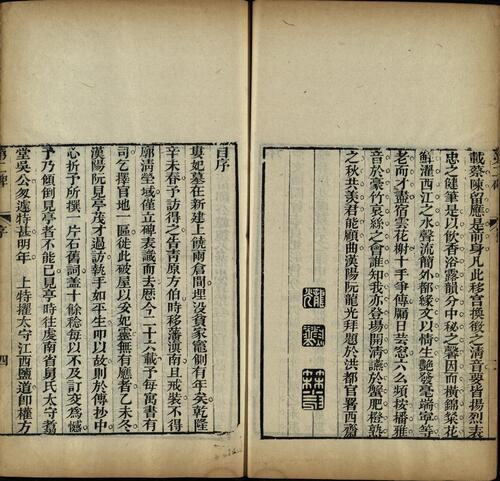 載蔡陳留應是前身凡此移宮換徵之清音要皆揚烈表
忠之健筆是以飲香浴露韻分中秘之馨因而橫錦粲花
鮮濯西江之水聲流簡外都緣文以情生艶發毫端寧等
老而才盡宿雲花榭十手爭傳屬日雲窓六幺頻按播雅
音於豪竹哀絲之會誰知我亦登場開清讌於蟹肥橙熟
之秋共羨君能顧曲漢陽阮龍光拜題於洪都官署西齋
自序
婁妃墓在新建上饒兩倉間埋没貧家竈側有年矣乾隆
辛未春予訪得之告青原方伯時移藩滇南且戒裝不得
廓清塋域僅立碑表識而去歷今二十六載予每寓書有
司乞擇官地一區徙此破屋以安妃靈無有應者乙未冬
漢陽阮見亭茂才過訪執手如平生叩以故則於傳抄中
心折予所撰一片石舊詞盖十餘稔每以不及訂交爲憾
予乃傾倒見亭者不能已見亭時往虔南省舅氏太守翥
堂吳公匆遽特甚明年 上特擢太守江西鹽道卽權方
第二碑 序 四